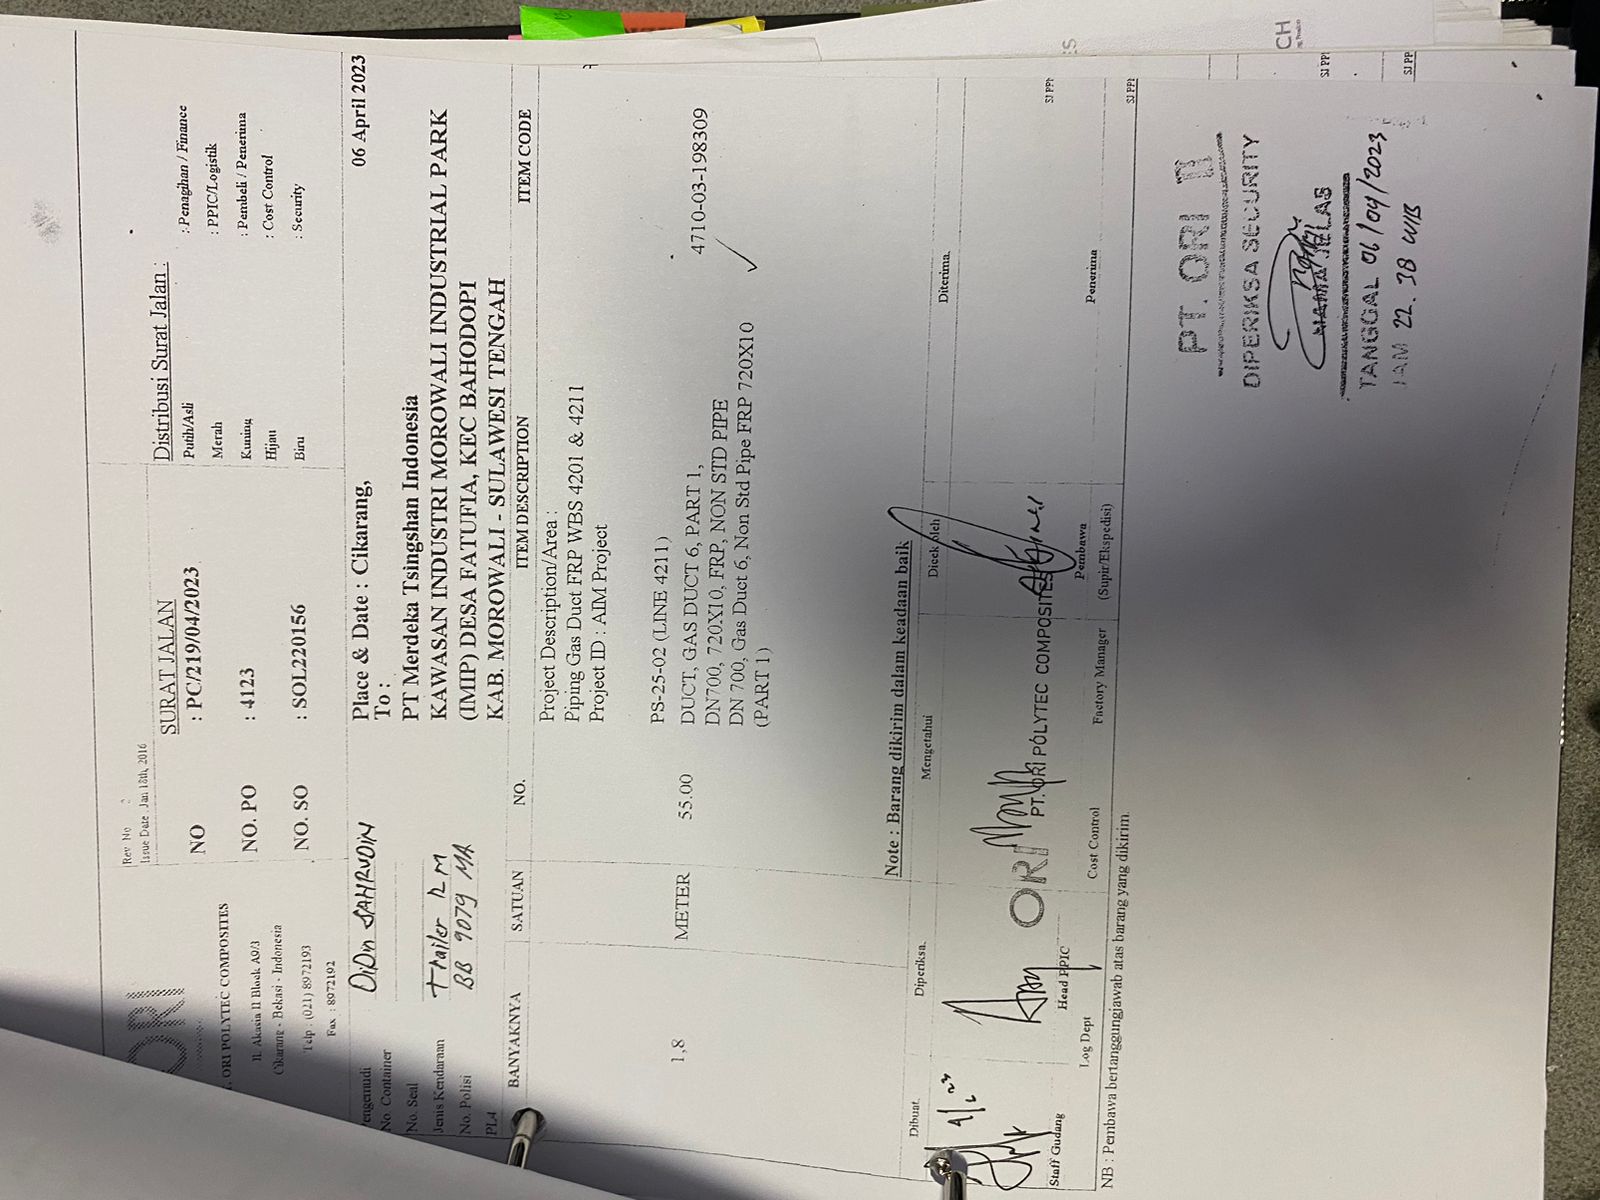 ORI
Rev No 2
Issue Date . Jan 18th, 2016
ORI POLYTEC COMPOSITES
Jl. Akasia II Block A9/3
Cikarang - Bekasi - Indonesia
Telp : (021) 8972193
Fax : 8972192
SURAT JALAN
NO : PC/219/04/2023
NO. PO : 4123
NO. SO : SOL220156
Distribusi Surat Jalan :
Putih/Asli : Penagihan / Finance
Merah : PPIC/Logistik
Kuning : Pembeli / Penerima
Hijau : Cost Control
Biru : Security
engemudi DiDin SAHRUDIN
No. Container
No. Seal
Jenis Kendaraan Trailer
No. Polisi BB 9079 MA
Place & Date : Cikarang, 06 April 2023
To :
PT Merdeka Tsingshan Indonesia
KAWASAN INDUSTRI MOROWALI INDUSTRIAL PARK
(IMIP) DESA FATUFIA, KEC BAHODOPI
KAB. MOROWALI - SULAWESI TENGAH
BANYAKNYA SATUAN NO. ITEM DESCRIPTION ITEM CODE
Project Description/Area :
Piping Gas Duct FRP WBS 4201 & 4211
Project ID : AIM Project
PS-25-02 (LINE 4211)
1,8 METER 55.00 DUCT, GAS DUCT 6, PART 1, 4710-03-198309
DN700, 720X10, FRP, NON STD PIPE
DN 700, Gas Duct 6, Non Std Pipe FRP 720X10
(PART 1)
Note : Barang dikirim dalam keadaan baik
Dibuat. Diperiksa. Mengetahui Dicek oleh Diterima.
ORI PT. ORI POLYTEC COMPOSITES
Staff Gudang Log Dept Head PPIC Cost Control Factory Manager Pembawa Penerima
(Supir/Ekspedisi)
NB : Pembawa bertanggungjawab atas barang yang dikirim.
SJ PPI
SJ PPI
SJ PPI
SJ PPI
CH
PT. ORI
DIPERIKSA SECURITY
NAMA JELAS
TANGGAL 06/04/2023
JAM 22.38 WIB